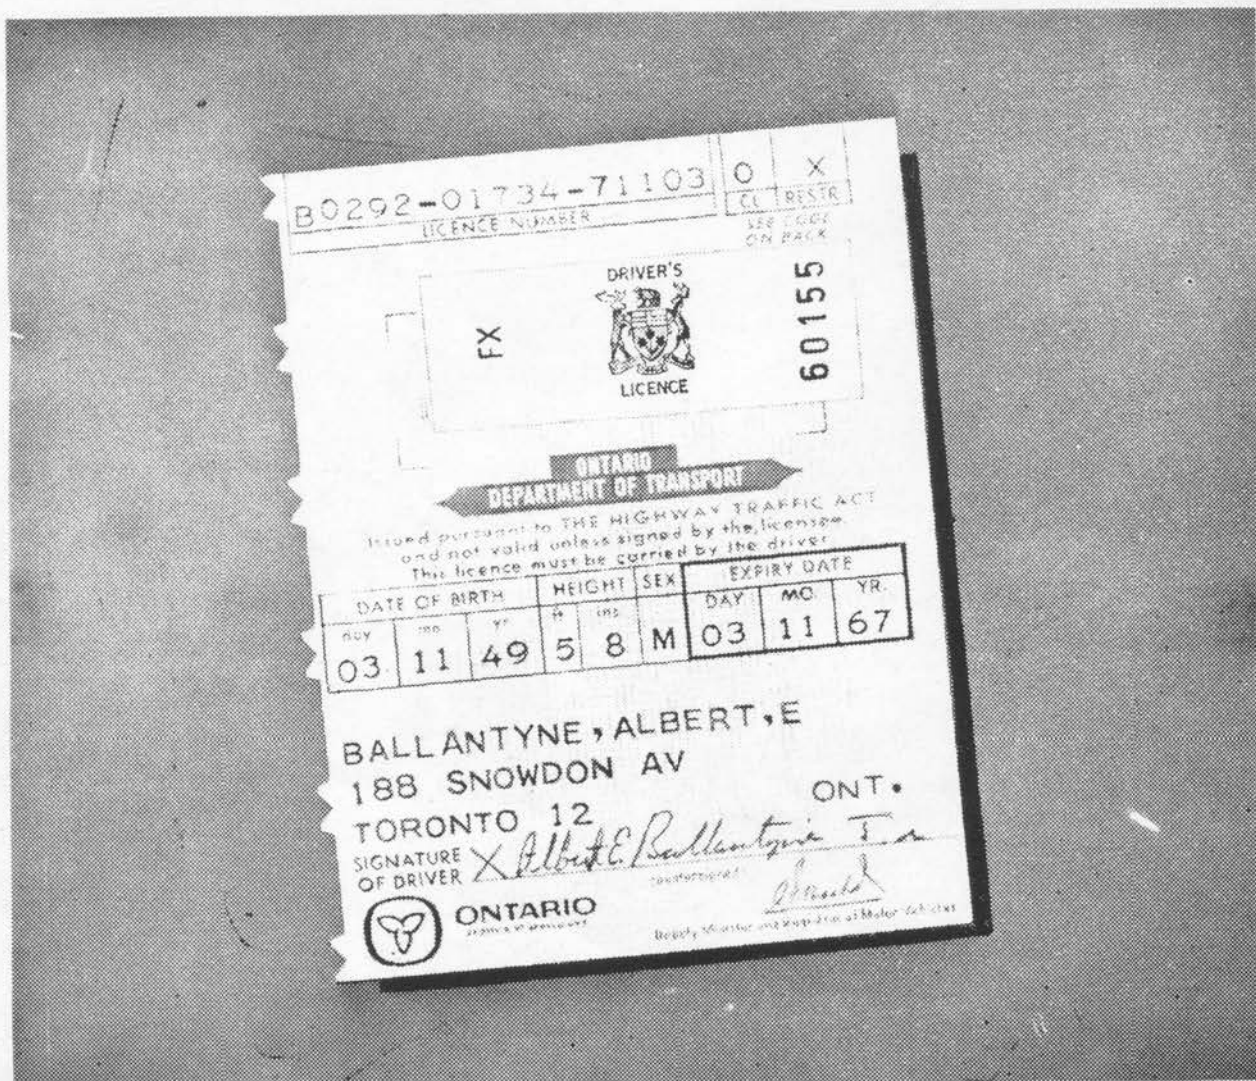 B0292-01734-71103 O X
LICENCE NUMBER CL RESTR
SEE CODE
ON BACK
DRIVER'S
FX
60155
LICENCE
ONTARIO
DEPARTMENT OF TRANSPORT
Issued pursuant to THE HIGHWAY TRAFFIC ACT
and not valid unless signed by the licensee.
This licence must be carried by the driver.
DATE OF BIRTH HEIGHT SEX EXPIRY DATE
day mo yr ft ins DAY MO. YR.
03 11 49 5 8 M 03 11 67
BALLANTYNE,ALBERT,E
188 SNOWDON AV
TORONTO 12 ONT.
SIGNATURE
OF DRIVER X Albert E. Ballantyne
countersigned
ONTARIO
Deputy Minister and Registrar of Motor Vehicles